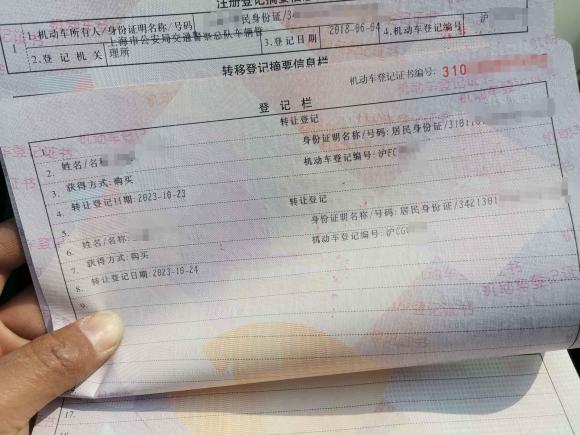 注册登记摘要信息栏
1
1.机动车所有人/身份证明名称/号码
民身份证/3
2.登记机关
上海市公安局交通警察总队车辆管理所
3.登记日期
2018-06-04
4.机动车登记编号
沪
转移登记摘要信息栏
机动车登记证书编号: 310
登 记 栏
1.
转让登记
2. 姓名/名称
身份证明名称/号码:居民身份证/3101
3. 获得方式:购买
机动车登记编号:沪F
4. 转让登记日期:2023-10-23
5.
转让登记
6. 姓名/名称:
身份证明名称/号码:居民身份证/3421301
7. 获得方式:购买
机动车登记编号:沪CG
8. 转让登记日期:2023-10-24
9.
17.